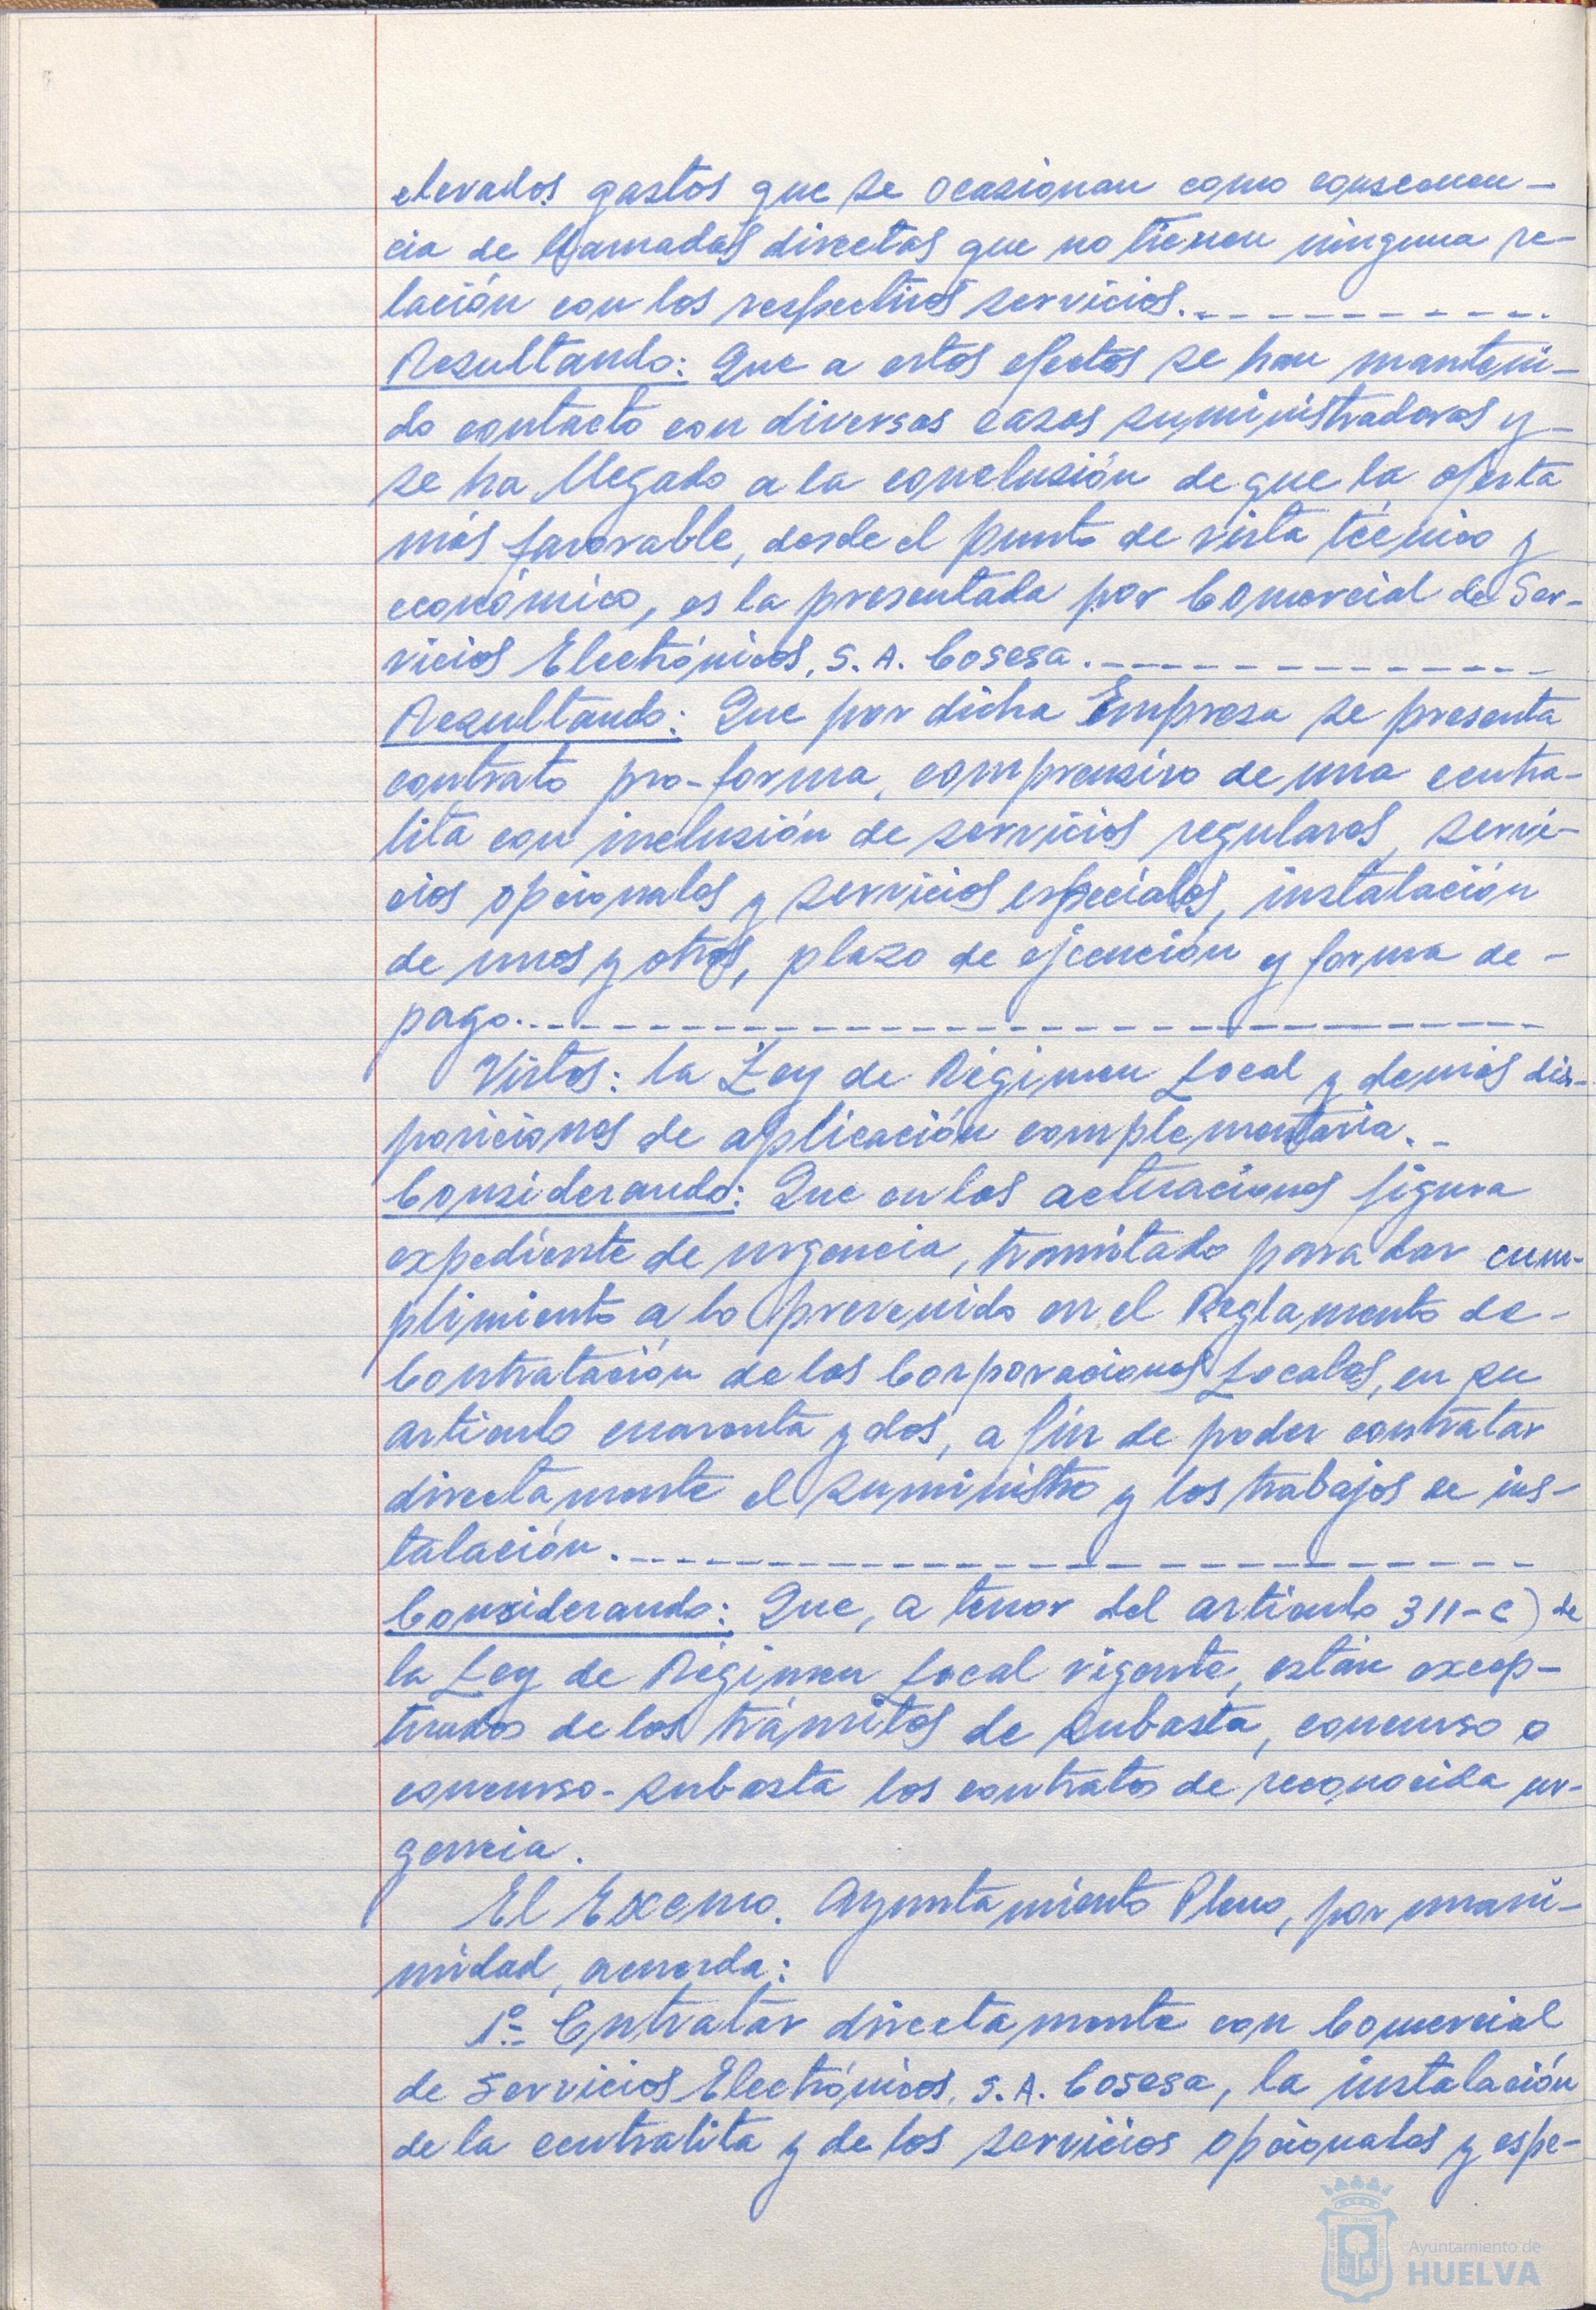 elevados gastos que se ocasionan como consecuen-
cia de llamadas directas que no tienen ninguna re-
lación con los respectivos servicios.
Resultando: Que a estos efectos se han manteni-
do contacto con diversas casas suministradoras y
se ha llegado a la conclusión de que la oferta
más favorable, desde el punto de vista técnico y
económico, es la presentada por Comercial de Ser-
vicios Electrónicos, S. A. Cosesa.
Resultando: Que por dicha Empresa se presenta
contrato pro-forma, comprensivo de una centra-
lita con inclusión de servicios regulares, servi-
cios opcionales y servicios especiales, instalación
de unos y otros, plazo de ejecución y forma de-
pago.
Vistos: la Ley de Régimen Local y demás dis-
posiciones de aplicación complementaria.-
Considerando: Que en las actuaciones figura
expediente de urgencia, tramitado para dar cum-
plimiento a lo prevenido en el Reglamento de-
Contratación de las Corporaciones Locales, en su
artículo cuarenta y dos, a fin de poder contratar
directamente el suministro y los trabajos de ins-
talación.
Considerando: Que, a tenor del artículo 311-c) de
la Ley de Régimen Local vigente, están excep-
tuados de los trámites de subasta, concurso o
concurso-subasta los contratos de reconocida ur-
gencia.
El Excmo. Ayuntamiento Pleno, por unani-
midad, acuerda:
1º- Cntratar directamente con Comercial
de Servicios Electrónicos, S. A. Cosesa, la instalación
de la centralita y de los servicios opcionales y espe-
Ayuntamiento de
HUELVA